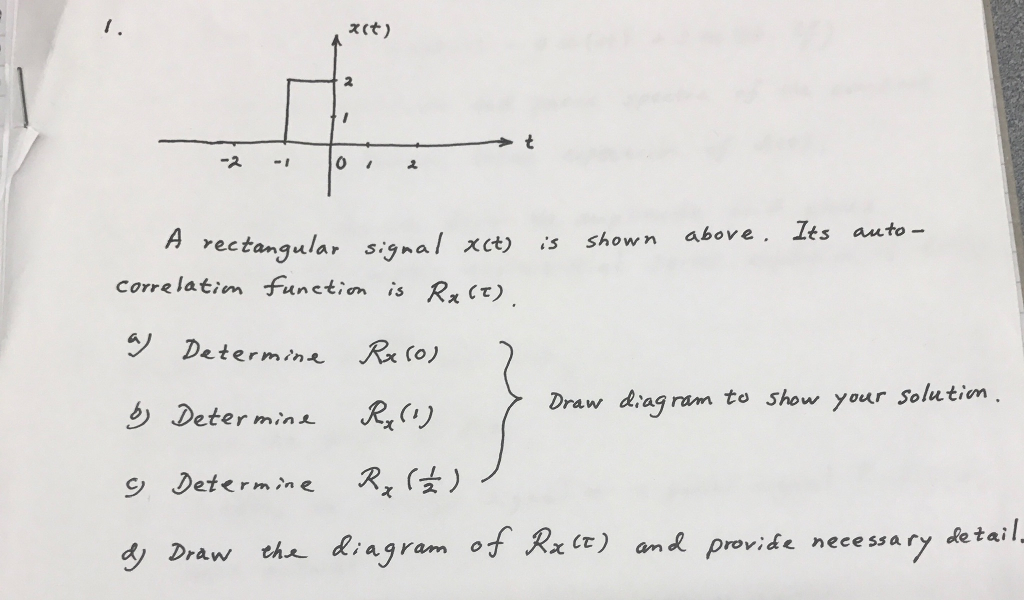 1.
x(t)
2
1
t
-2 -1 0 1 2
A rectangular signal x(t) is shown above. Its auto-
correlation function is Rx(τ).
a) Determine Rx(0)
b) Determine Rx(1)
Draw diagram to show your solution.
c) Determine Rx(1/2)
d) Draw the diagram of Rx(τ) and provide necessary detail.